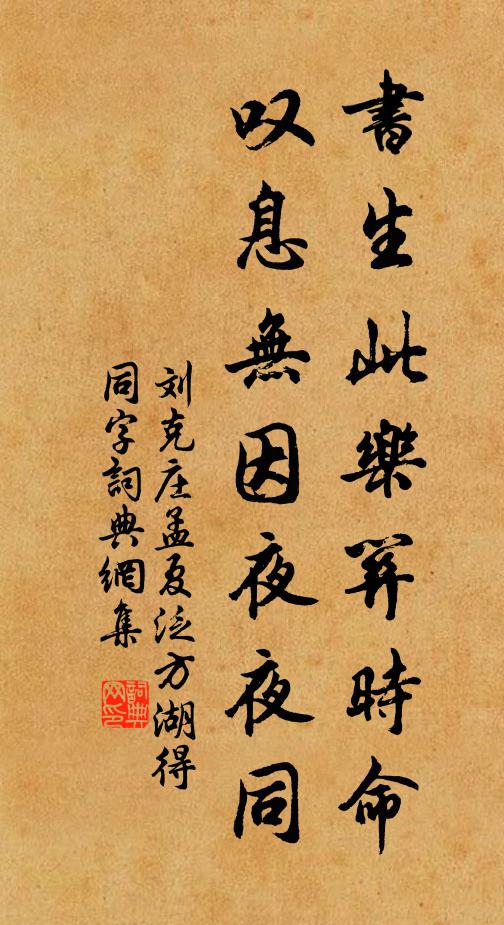 書生此樂關時命
叹息無因夜夜同
刘克庄孟夏泛方湖得
同字詞典網集
詞典
网印